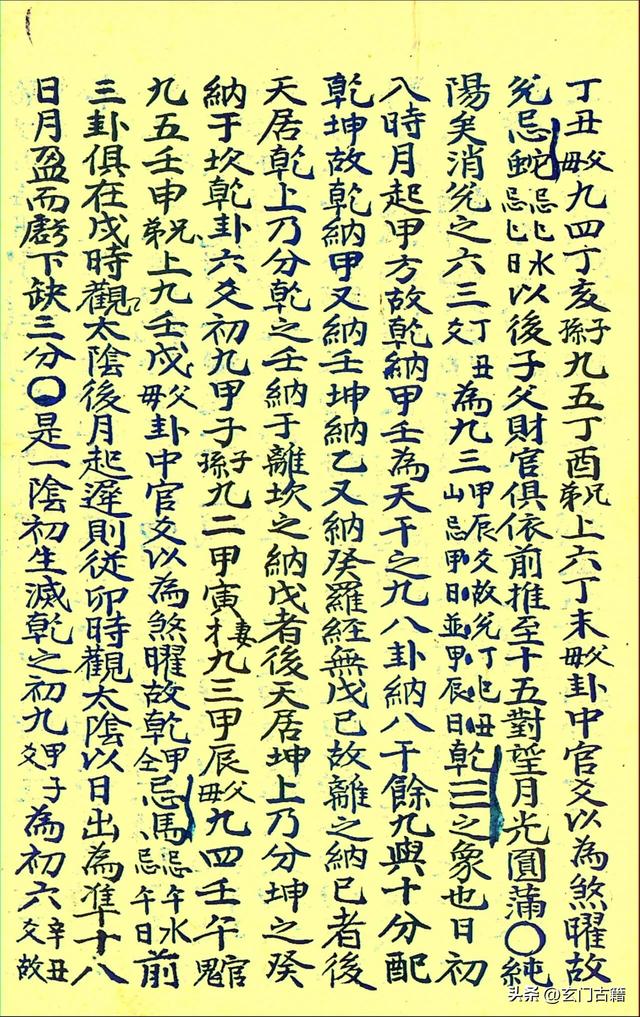 丁丑父母九四丁亥子孫九五丁酉兄弟上六丁未父母卦中官爻以為煞曜故
兌忌蛇忌匕水忌匕日以後子父財官俱依前推至十五對望月光圓滿〇純
陽矣消兌之六三丁丑爻為九三甲辰爻故兌丁匕丑山忌甲日並甲辰日乾三之象也日初
八時月起甲方故乾納甲壬為天干之九八卦納八干餘九與十分配
乾坤故乾納甲又納壬坤納乙又納癸羅經無戊已故離之納已者後
天居乾上乃分乾之壬納于離坎之納戊者後天居坤上乃分坤之癸
納于坎乾卦六爻初九甲子子孫九二甲寅妻才九三甲辰父母九四壬午官鬼
九五壬申兄弟上九壬戌父母卦中官爻以為煞曜故乾甲仝忌馬忌午水忌午日前
三卦俱在戌時觀太陰後月起遲則從卯時觀太陰以日出為准十八
日月盈而虧下缺三分〇是一陰初生滅乾之初九甲子爻為初六辛丑爻故
头条@玄门古籍